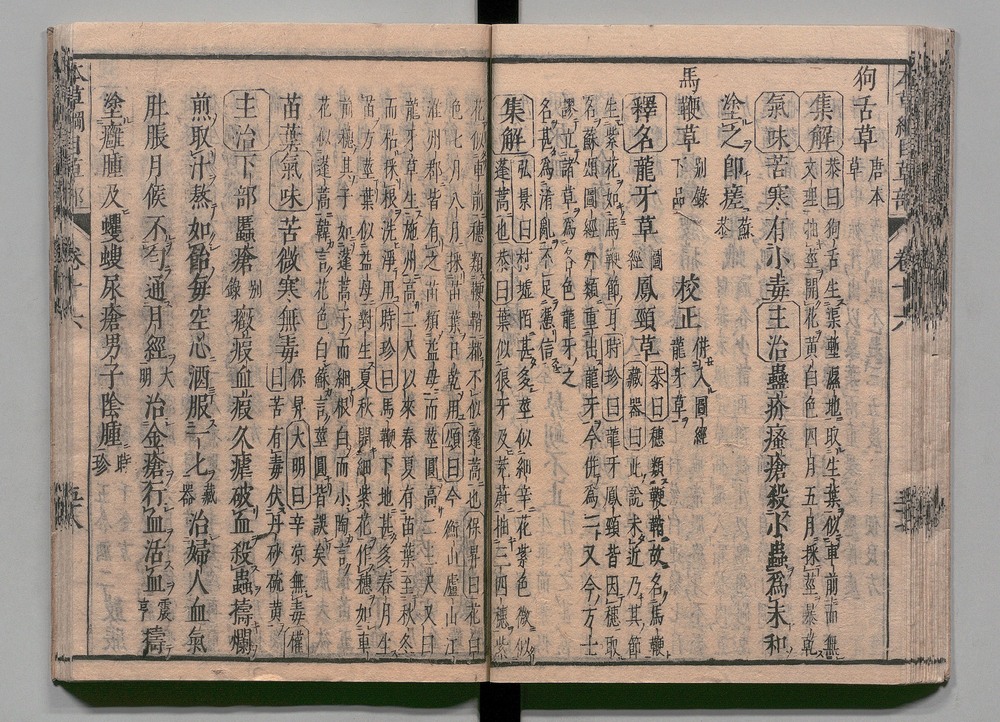 狗舌草 唐本草
集解 恭曰狗舌生渠塹濕地叢生葉似車前而無
文理抽莖開花黃白色四月五月採莖暴乾
氣味苦寒有小毒 主治蠱疥瘙瘡殺小蟲爲末和
塗之卽瘥 蘇恭
馬鞭草 別錄下品 校正 併入圖經龍牙草
釋名龍牙草 圖經 鳳頸草 恭曰穗類鞭鞘故名馬鞭
藏器曰此說未近乃其節
生紫花如馬鞭節耳時珍曰龍牙鳳頸皆因穗取
名蘇頌圖經外類重出龍牙今併爲一又今方士
謬立諸草爲各色龍牙之
名甚爲淆亂不足憑信
集解 弘景曰村墟陌甚多莖似細辛花紫色微似
蓬蒿也恭曰葉似狼牙及茺蔚抽三四穗紫
花似車前穗類鞭鞘都不似蓬蒿也保昇曰花白
色七月八月採苗葉日乾用頌曰今衡山廬山江
淮州郡皆有之苗類益母而莖圓高二三尺又曰
龍牙草生施州高二尺以來春夏有苗葉至秋冬
而枯採根洗淨用時珍曰馬鞭下地甚多春月生
苗方莖葉似益母對生夏秋開細紫花作穗如車
前穗其子如蓬蒿子而細根白而小陶言
花似蓬蒿韓言花色白蘇言莖圓皆誤矣
苗葉氣味苦微寒無毒 保昇曰苦有毒伏丹砂硫黃
大明曰辛凉無毒權
主治下部䘌瘡 別錄 癥瘕血瘕久瘧破血殺蟲擣爛
煎取汁熬如飴每空心酒服一匕 藏器 治婦人血氣
肚脹月候不勻通月經 大明 治金瘡行血活血 震亨 擣
塗癰腫及蠼螋尿瘡男子陰腫 時珍
本草綱目草部 卷十六